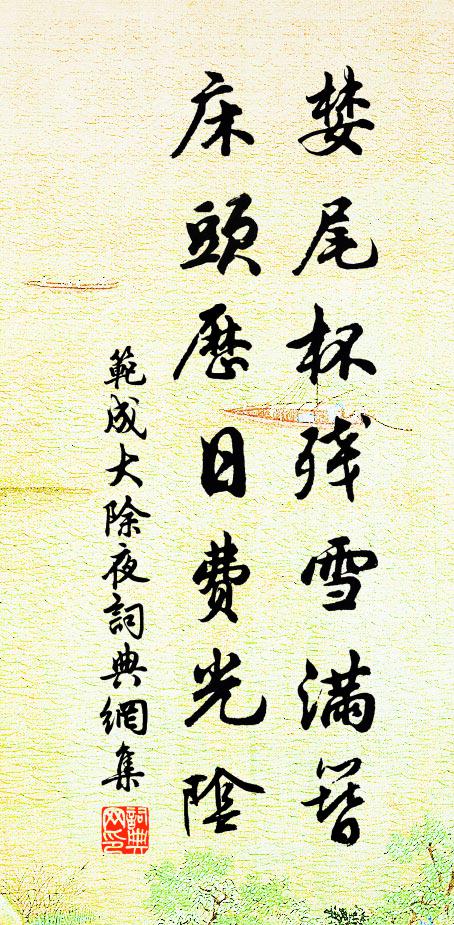 婪尾杯殘雪滿簪
床頭曆日費光陰
範成大除夜詞典網集
詞典
网印